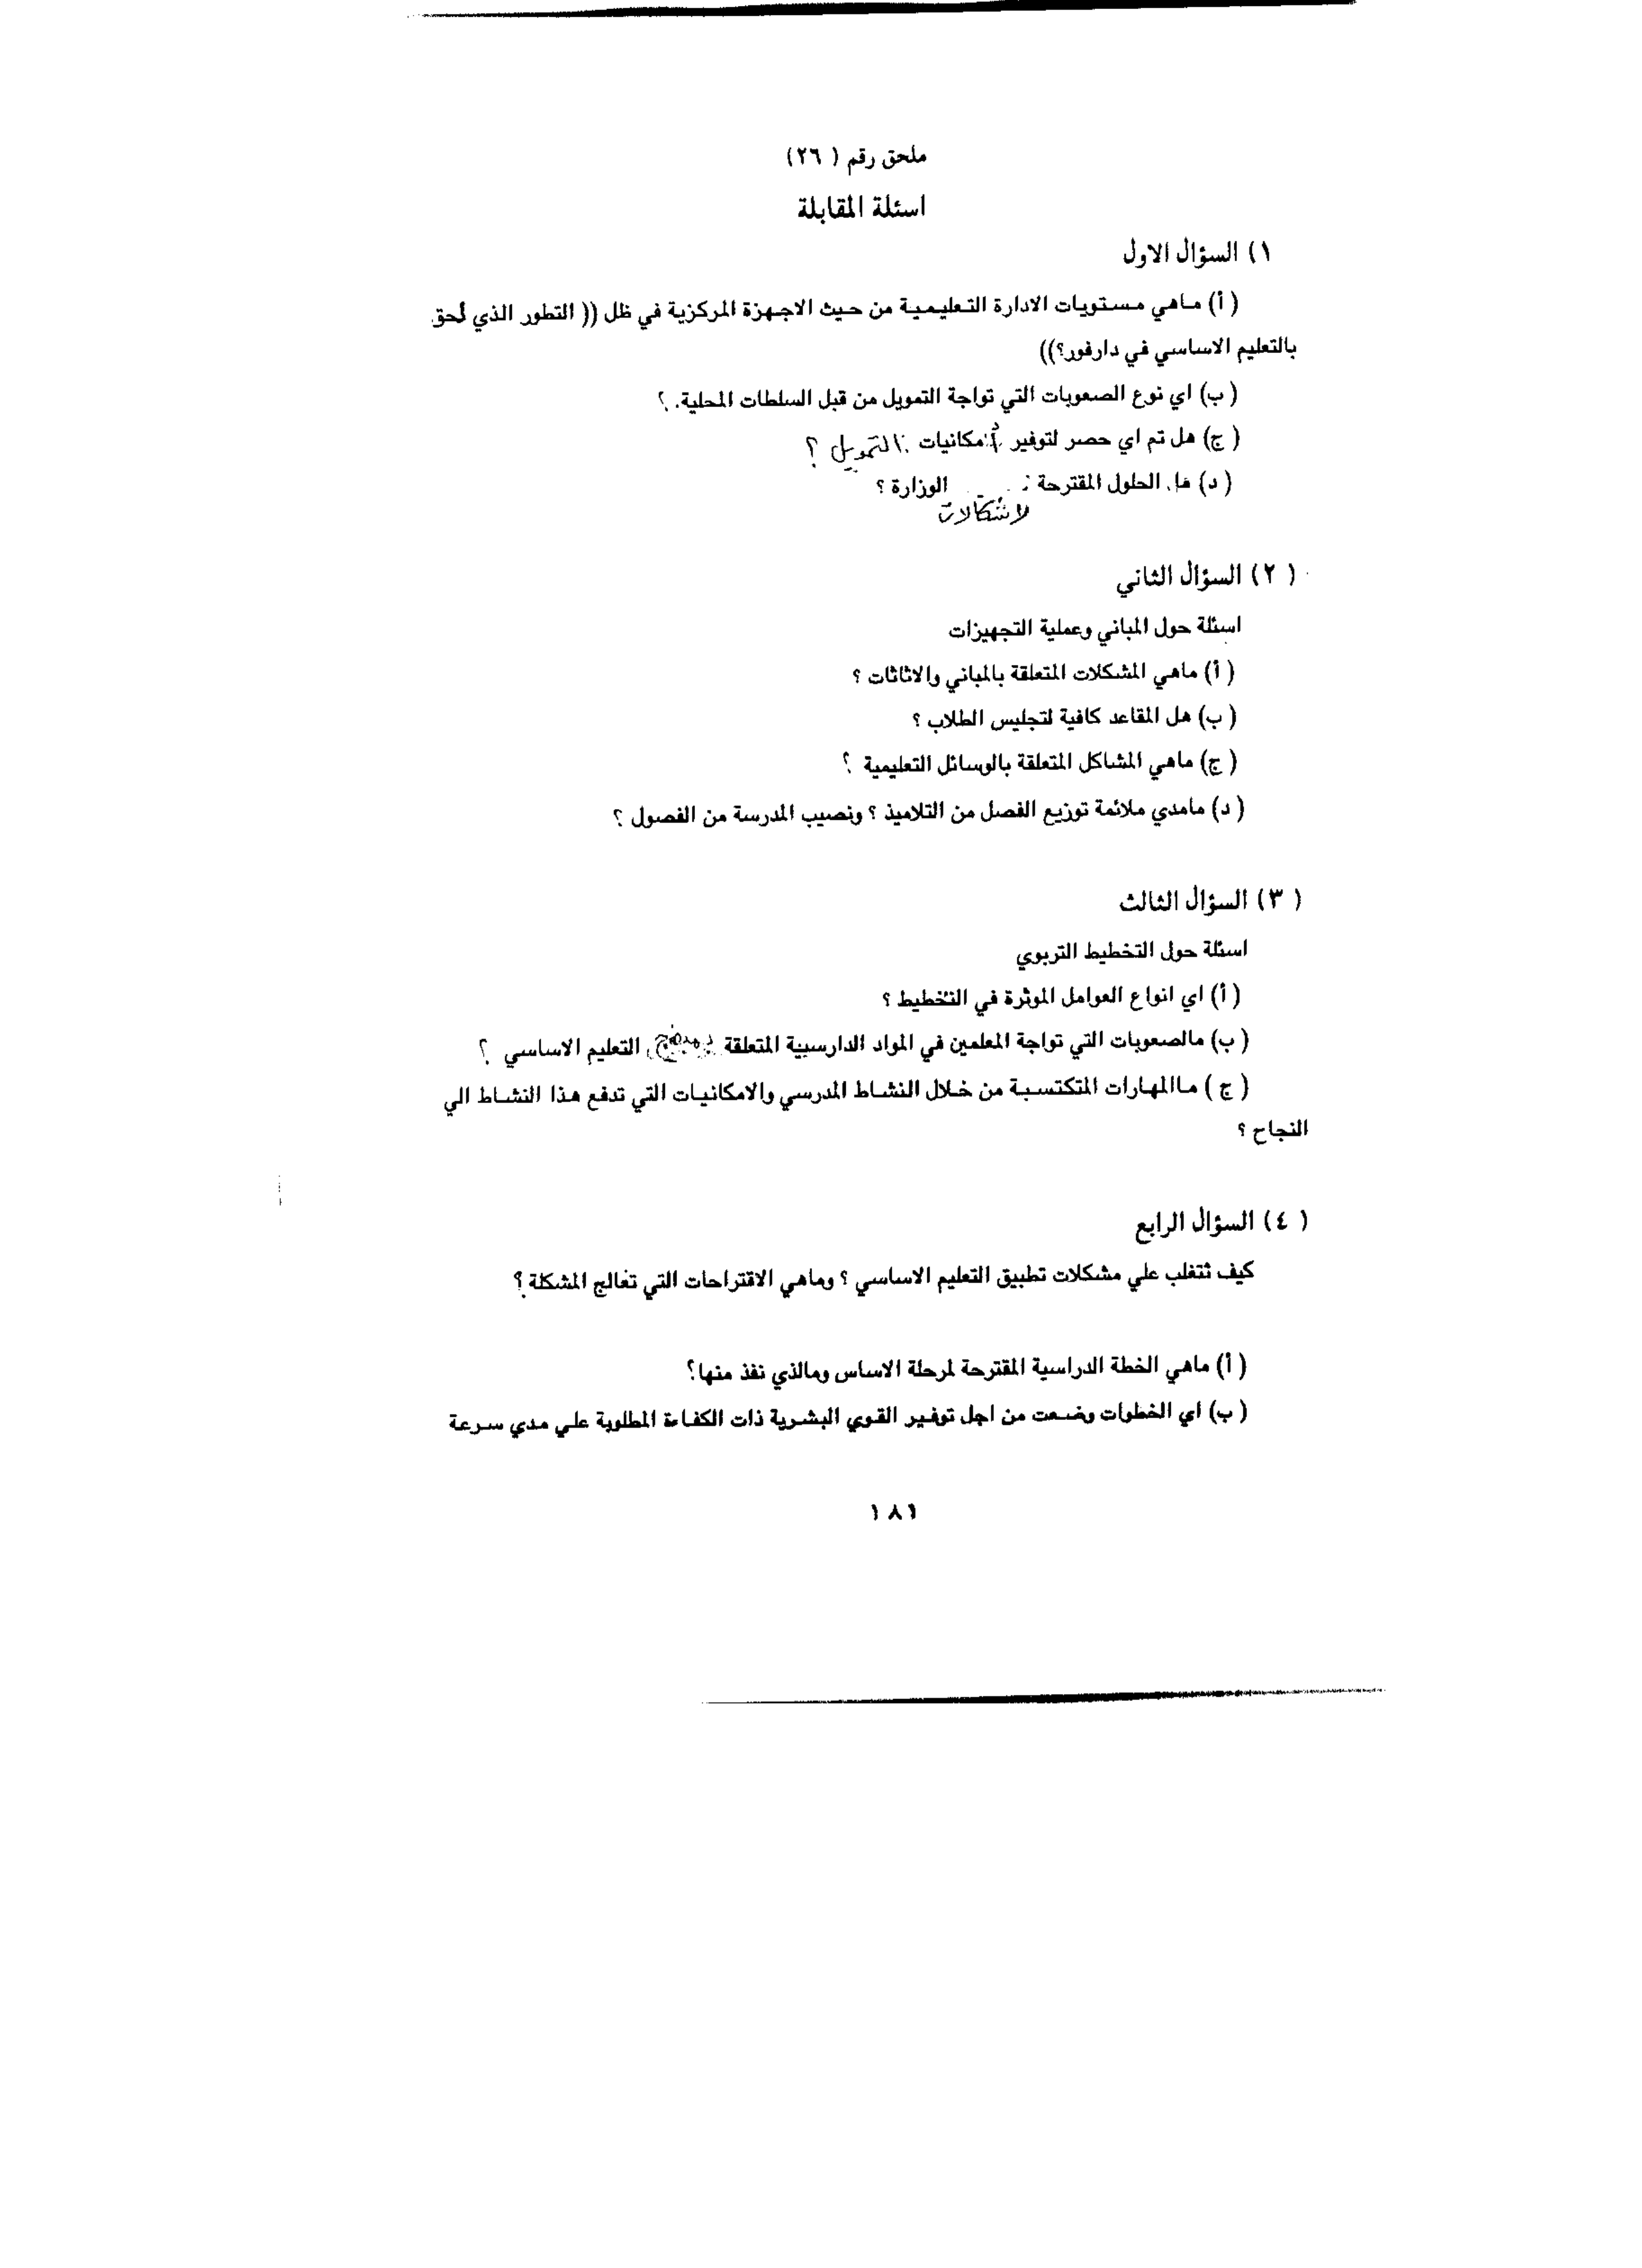 ملحق رقم ( ٢٦)
اسئلة المقابلة
١) السؤال الاول
( أ) ماهي مستويات الادارة التعليمية من حيث الاجهزة المركزية في ظل (( التطور الذي لحق
بالتعليم الاساسي في دارفور؟))
( ب) اي نوع الصعوبات التي تواجة التمويل من قبل السلطات المحلية. ؟
( ج) هل تم اي حصر لتوفير أمكانيات التمويل ؟
( د) ما الحلول المقترحة الوزارة ؟
لاشكالات
( ٢) السؤال الثاني
اسئلة حول المباني وعملية التجهيزات
( أ) ماهي المشكلات المتعلقة بالمباني والاثاثات ؟
( ب) هل المقاعد كافية لتجليس الطلاب ؟
( ج) ماهي المشاكل المتعلقة بالوسائل التعليمية ؟
( د) مامدي ملائمة توزيع الفصل من التلاميذ ؟ ونصيب المدرسة من الفصول ؟
( ٣) السؤال الثالث
اسئلة حول التخطيط التربوي
( أ) اي انواع العوامل الموثرة في التخطيط ؟
( ب) مالصعوبات التي تواجة المعلمين في المواد الدارسيية المتعلقة بمنهج التعليم الاساسي ؟
( ج ) ماالمهارات المتكتسبة من خلال النشاط المدرسي والامكانيات التي تدفع هذا النشاط الي
النجاح ؟
( ٤) السؤال الرابع
كيف تتغلب علي مشكلات تطبيق التعليم الاساسي ؟ وماهي الاقتراحات التي تعالج المشكلة ؟
( أ) ماهي الخطة الدراسية المقترحة لمرحلة الاساس ومالذي نفذ منها؟
( ب) اي الخطوات وضعت من اجل توفير القوي البشرية ذات الكفاءة المطلوبة علي مدي سرعة
١٨١